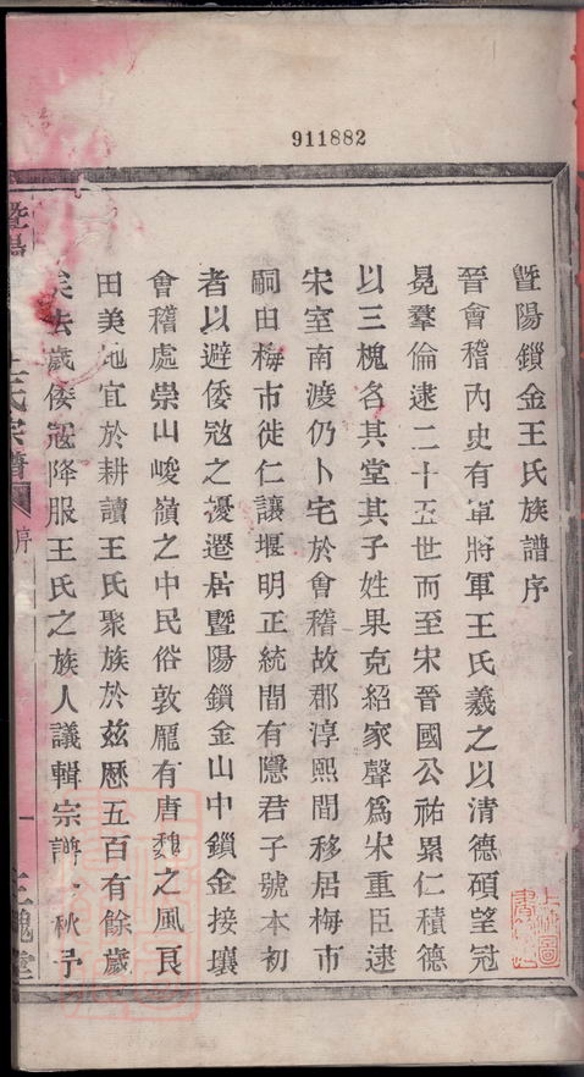 911882
暨陽鎖金王氏族譜序
晉會稽內史右軍將軍王氏羲之以清德碩望冠
冕羣倫逮二十五世而至宋晉國公祐累仁積德
以三槐名其堂其子姓果克紹家聲爲宋重臣逮
宋室南渡仍卜宅於會稽故郡淳熙間移居梅市
嗣由梅市徙仁讓堰明正統間有隱君子號本初
者以避倭寇之擾遷居暨陽鎖金山中鎖金接壤
會稽處崇山峻嶺之中民俗敦龐有唐魏之風良
田美地宜於耕讀王氏聚族於茲厯五百有餘歲
矣去歲倭寇降服王氏之族人議輯宗譜秋予
暨陽
王氏宗譜
序
一
三槐堂